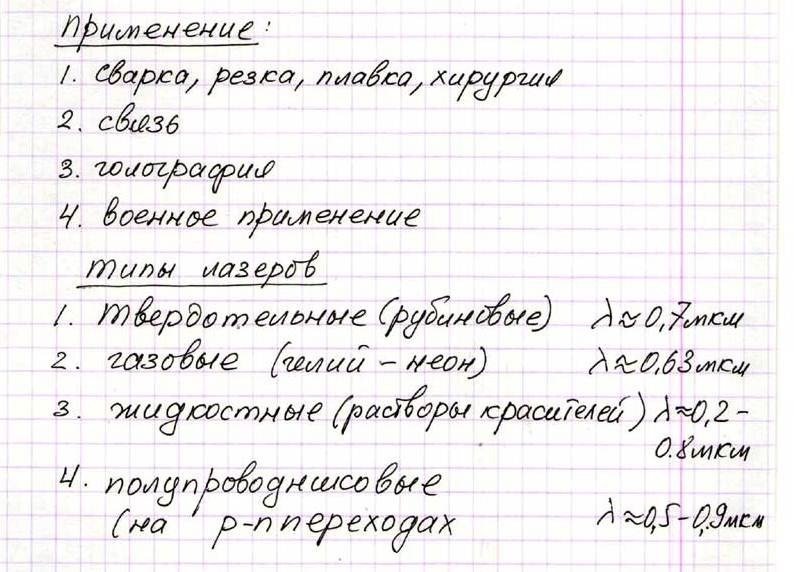 Применение:
1. сварка, резка, плавка, хирургия
2. связь
3. голография
4. военное применение
типы лазеров
1. твердотельные (рубиновые) λ≈0,7мкм
2. газовые (гелий – неон) λ≈0,63мкм
3. жидкостные (растворы красителей) λ≈0,2–
0.8мкм
4. полупроводниковые
(на p-n переходах λ≈0,5–0,9мкм